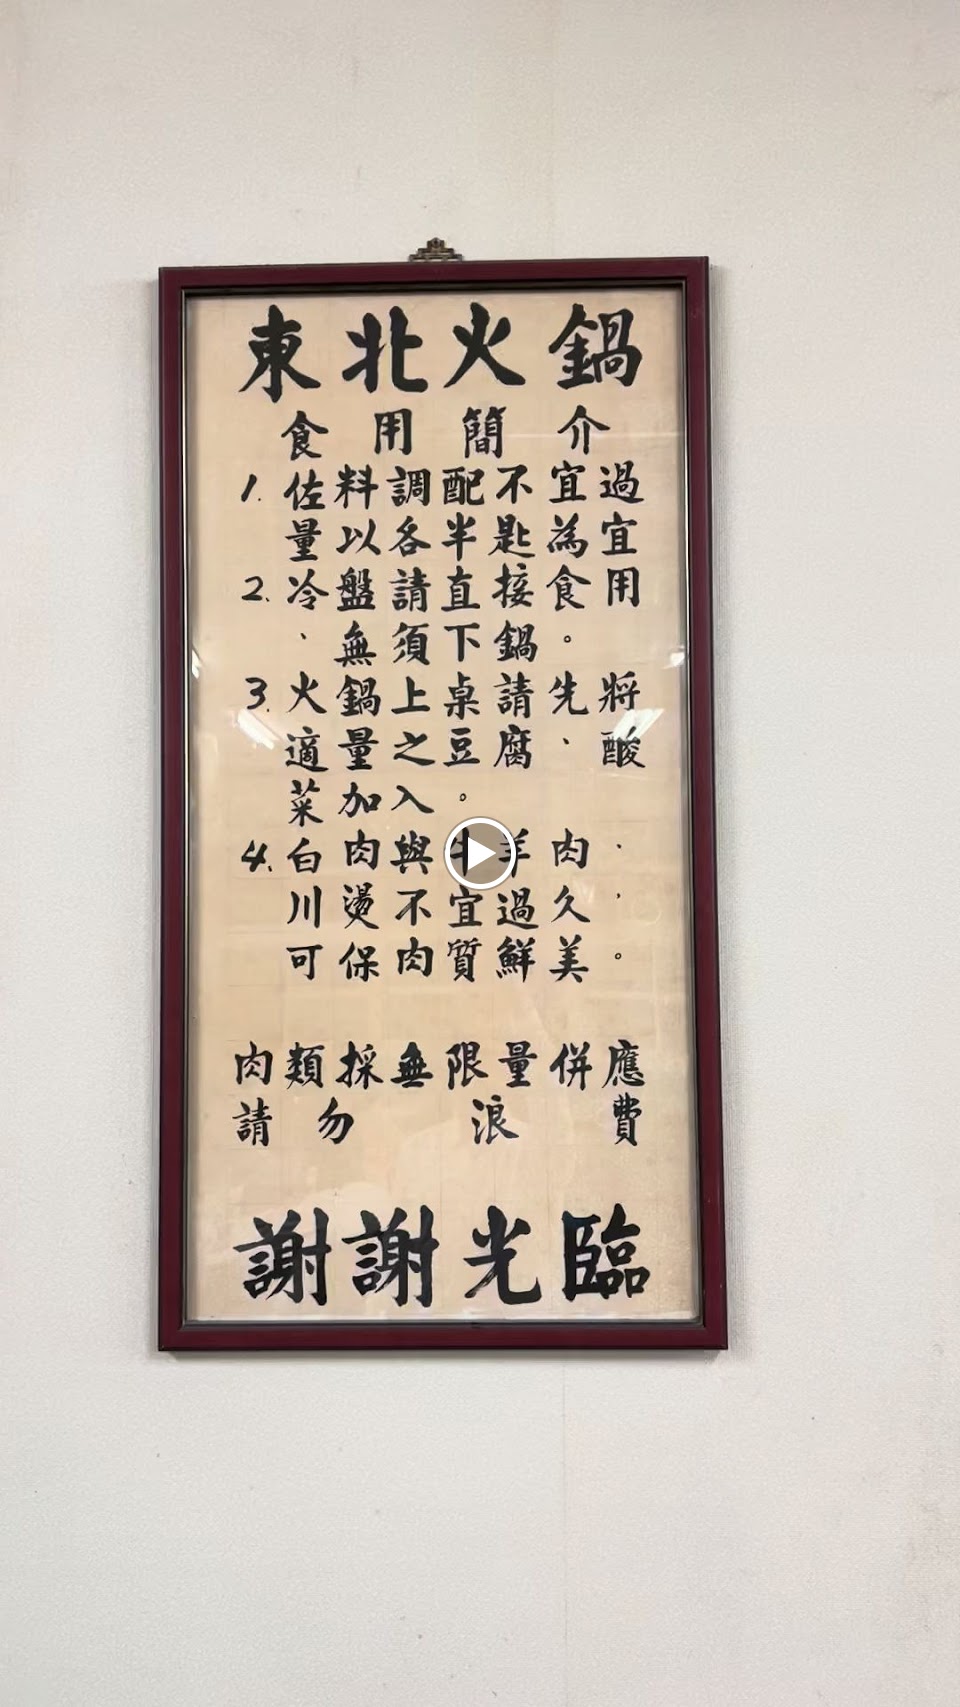 東北火鍋
食用簡介
1. 佐料調配不宜過
量以各半匙為宜
2. 冷盤請直接食用
、無須下鍋。
3. 火鍋上桌請先將
適量之豆腐、酸
菜加入。
4. 白肉與牛羊肉、
川燙不宜過久、
可保肉質鮮美。
肉類採無限量供應
請勿浪費
謝謝光臨